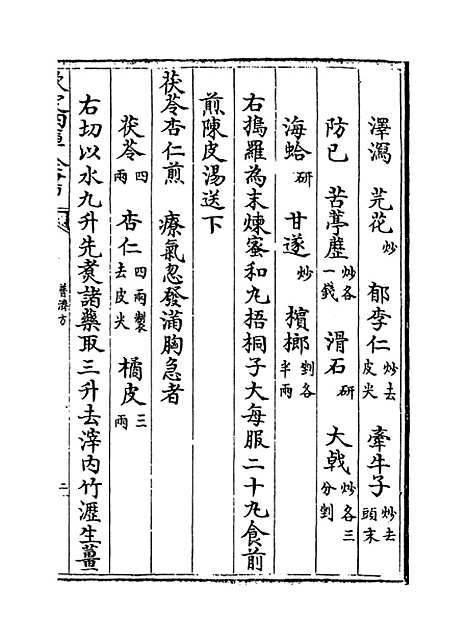 澤瀉 芫花炒 郁李仁炒去皮尖 牽牛子炒去頭末
防己 苦葶藶炒各一錢 滑石研 大戟炒各三分剉
海蛤研 甘遂炒 檳榔剉各半兩
右搗羅為末煉蜜和丸梧桐子大每服二十丸食前
煎陳皮湯送下
茯苓杏仁煎 療氣忽發滿胸急者
茯苓四兩 杏仁四兩製去皮尖 橘皮三兩
右切以水九升先煮諸藥取三升去滓内竹瀝生薑
普濟方
二